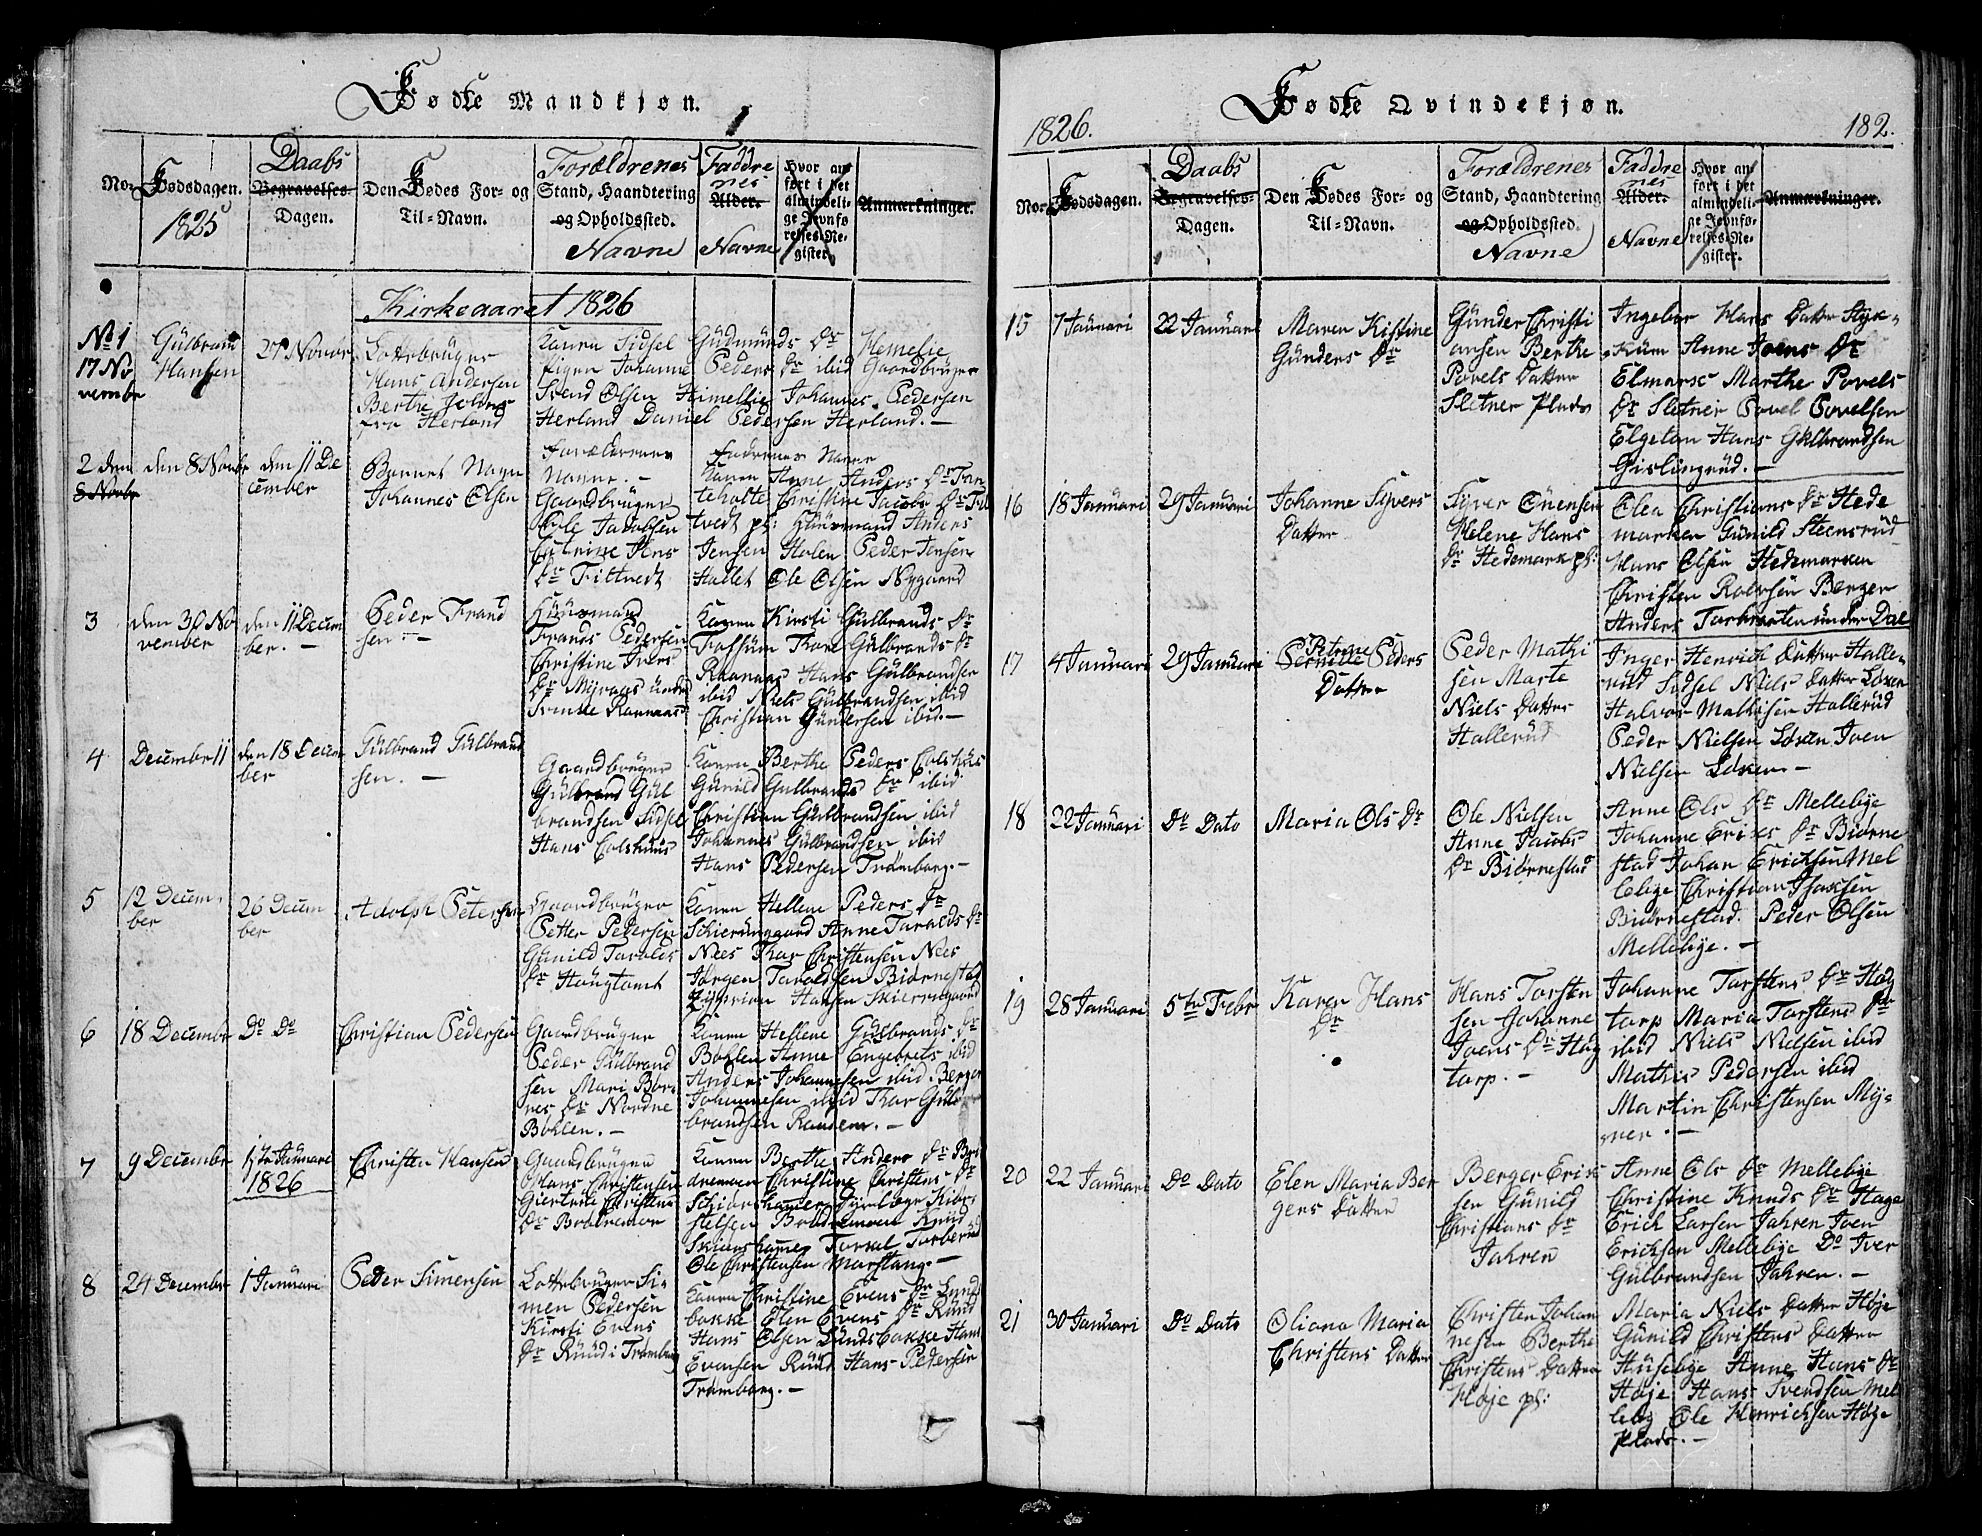 Fødte Mandkjøn.
No.
Fødsdagen.
1825
Daabs
Begravelses-
Dagen.
Den Fødes For- og
Til-Navn.
Forældrenes
Stand, Haandtering
og Opholdssted.
Navne
Faddre
nes
Alder.
Navne
Hvor an-
ført i det
almindeli-
ge Jevnfø-
relses-Re-
gister.
Anmærkninger.
Kirkeaaret 1826
No 1
17 No
vembr
Gülbrand
Hansen
27 Novbr
Hans Andersen
fra Herland
Karen Sidsel Gudmunds Dr Hemelie
Pigen Johanne Peders Dr ibid Gaardbrüger
Svend Olsen Himellie Johannes Pedersen
Herland Daniel Pedersen Herland. —
2 den
8 Novbr
den 8 Novbr
den 11 De
cember
Barnet Navn
Johannes Olsen
Forældrenes
Navne. —
Gaardbrüger
Ole Jacobsen
Dr Tittvedt
Fadrenes Navne
Konen Anne Anders Dr
Christine Jacobs Dr
tvedt pl: Hüüsmand Anders
Jensen Holen Peder Jensen
Hallet Ole Olsen Nygaard
3
den 30 No
vember
den 11 Decem
ber. —
Peder Frand
sen —
Hüüsmand
Frands Pedersen
Christine Ivers
Dr Myraas ünder
Konen Kirsti Gülbrands Dr
Fossüm Kari Gülbrands Dr
Ramnaas Hans Gülbrandsen
ibid Niels Gülbrandsen ibid
Christian Gündersen ibid. —
4
December 11
den 18 Decem
ber
Gülbrand Gülbrand
sen. —
Gaardbrüger
Gülbrand Gül
brandsen Sidsel
Hans Colshuus
Konen Berthe Peders Colshus
Günild Gulbrands Dr ibid
Christian Gülbrandsen ibid
Johannes Gülbrandsen ibid
Hans Pedersen Trømborg. —
5
12 Decem
ber
26 Decem
ber
Adolph Petersen
Gaardbrüger
Petter Pedersen
Günild Tarales
Dr Haugtomt
Konen Hellene Peders Dr
Schierüngaard Anne Taralds Dr
Nees Thor Christensen Nees
Jørgen Taraldsen Biørnestad
Ziprian Hansen Skierengaard
6
18 December
Do Do
Christian Pedersen
Gaardbrüger
Peder Gülbrand
sen Mari Bør
nes Dr Nordne
Bøhlen. —
Konen Hellene Gülbrands Dr
Bøhlen Anne Engebrets ibid
Anders Johannesen ibid Berger
Johannesen ibid Thor Gül
brandsen Ramden. —
7
9 December
1ste Januari
1826
Christen Hansen
Gaardbrüger
Hans Christensen
Giertrüe Christens
Konen Berthe Anders Dr
Christine Christens Dr
Ole Christensen Morstang. —
8
24 December
1 Januari
Peder Simensen
Lottebrüger Si-
men Pedersen
Kirsti Evens
Dr Rüüd i Tromborg
Konen Christine Evens Dr Lunds
bakke Elen Evens Dr Rüüd
Hans Olsen Lündsbakke Hans
Evensen Rüüd Hans Pedersen
Tromborg. —
Fødte Qvindekjøn.
1826.
182.
No.
Fødsdagen.
Daabs
Begravelses-
Dagen.
Den Fødes For- og
Til-Navn.
Forældrenes
Stand, Haandtering
og Opholdssted.
Navne
Faddre
nes
Alder.
Navne
Hvor an-
ført i det
almindeli-
ge Jevnfø-
relses-Re-
gister.
Anmærkninger.
15
7 Januari
22 Januari
Maren Kistine
Günders Dr
Günder Christi
ansen Berthe
Povels Datter
Sletner Plads
Ingebor Hans Datter Styk-
Küm Anne Joens Dr
Elmarsc Marthe Povels
Dr Sletner Povel Povelsen
Elgetan Hans Gülbrandsen
Gislingrüd. —
16
18 Januari
29 Januari
Johanne Syvers
Datter
Syver Enensen
Helene Hans
Dr Hedemark pl:
Olea Christians Dr Hede
marken Günild Steensrüd
Hans Olsen Hedemarken
Christen Berger
Anders Torkroten ünder Dal
17
4 Januari
29 Januari
Petrine
Pernille Peders
Datter
Peder Mathi
sen Marte
Niels Datter
Hallerud
Inger Henrich Datter Halle-
rud Sidsel Niels Datter Løken
Halvor Mathisen Hallerüd
Peder Nielsen Løken Joen
Nielsen Løken. —
18
22 Januari
Do Dato
Maria Ols Dr
Ole Nielsen
Anne Jacobs
Dr Biørnestad
Anne Ols Dr Mellebye
Johanne Erikes Dr Biørne
stad Johan Erichsen Mel
lebye Christian Isaksen
Biørnestad. Peder Olsen
Mellebye. —
19
28 Januari
5te Febr
Karen Hans
Dr
Hans Torsten
sen Johanne
Joens Dr Hag
tarp. —
Johanne Torstens Dr Hag
tarp Maria Torstens Dr
ibid Niels Nielsen ibid
Mathis Pedersen ibid
Martin Christensen Myr-
rer. —
20
22 Januari
Do Dato
Elen Maria Ber
gers Datter
Berger Erik
sen Günild
Christians Dr
Jahren
Anne Ols Dr Mellebye
Christine Knuds Dr Hage
Erich Larsen Jahren Joen
Ericksen Mellebye Do Iver
Gülbrandsen Jahren. —
21
30 Januari
Do Dato
Oliana Maria
Christens Datter
Christen Johan
nesen Berthe
Christens Datter
Høje pl:
Maria Niels Datter Høje
Günild Christens Datter
Hüsebye Anne Hans Dr
Høje Hans Svendsen Mel
leby Ole Henrichsen Høje
Plads. —